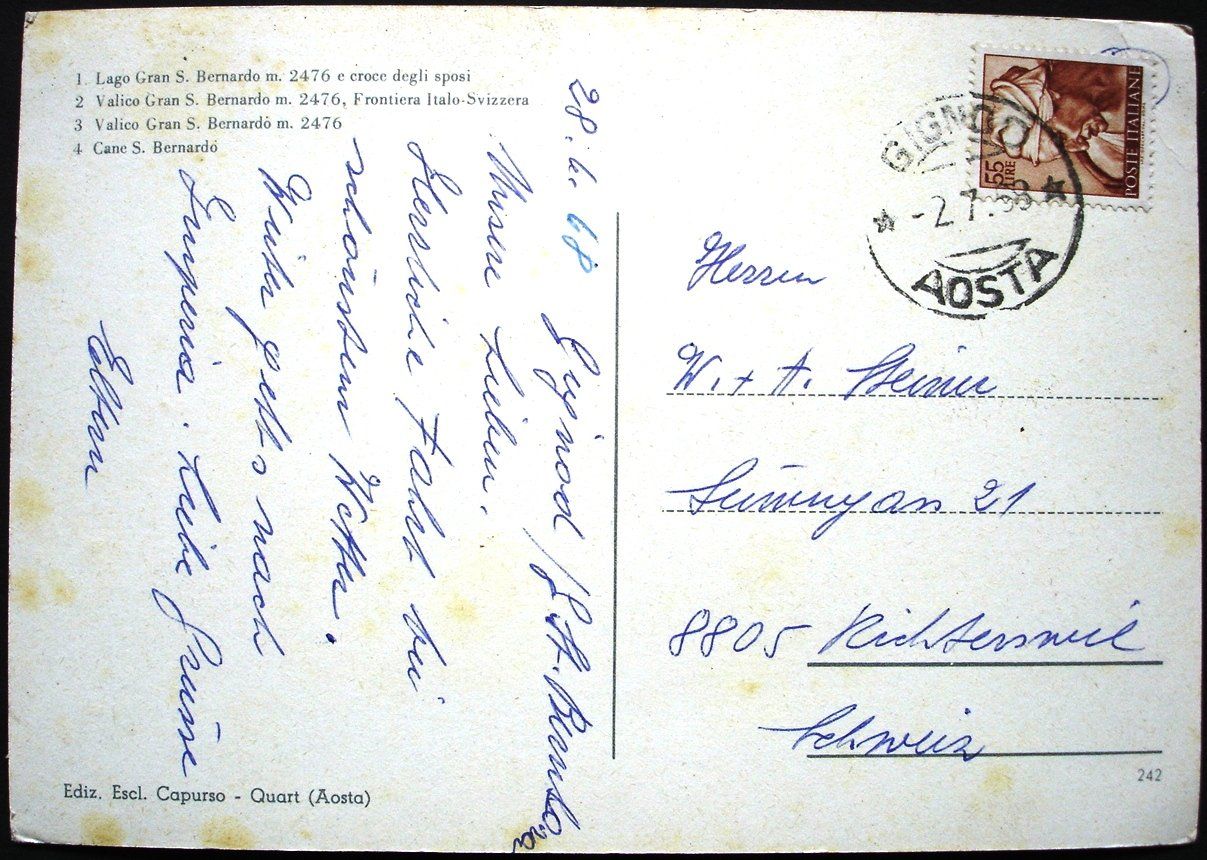 1 Lago Gran S. Bernardo m. 2476 e croce degli sposi
2 Valico Gran S. Bernardo m. 2476, Frontiera Italo-Svizzera
3 Valico Gran S. Bernardo m. 2476
4 Cane S. Bernardo
28. 6. 68
Gignod / G. St. Bernhard
Unsere Lieben.
Herrliche Fahrt bei
schönstem Wetter.
Weiter geht's nach
Imperia. Liebe Grüsse
Eltern
Ediz. Escl. Capurso - Quart (Aosta)
55 LIRE
POSTE ITALIANE
GIGNOD
-2.7.68
AOSTA
Herren
W. + A. Steiner
21
8805 Richterswil
Schweiz
242